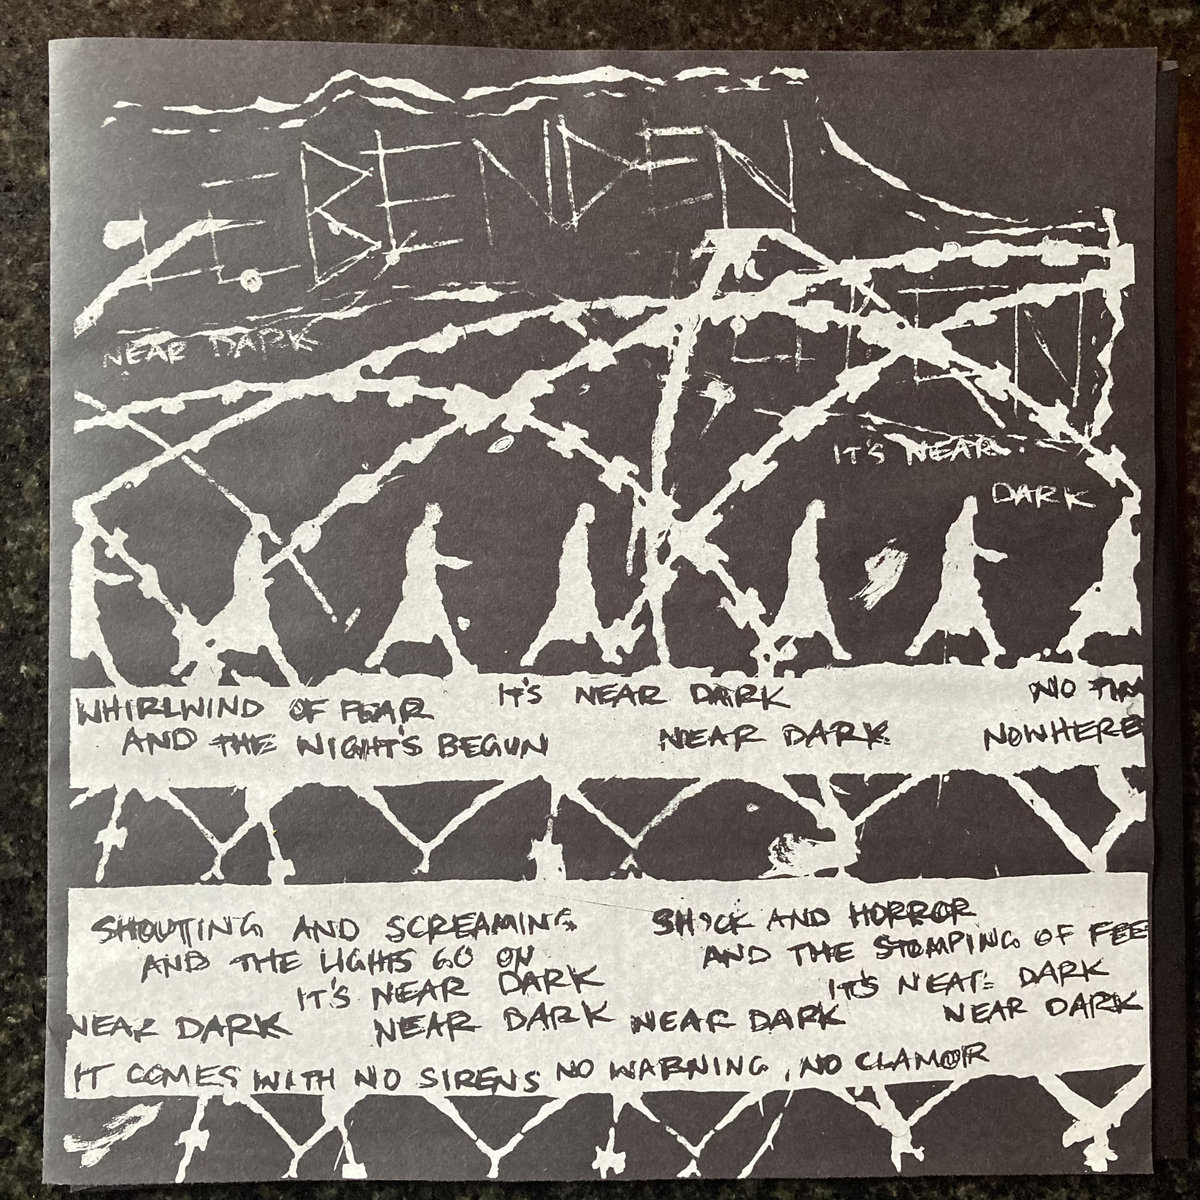 BENDEN
NEAR DARK
IT'S NEAR
DARK
WHIRLWIND OF FEAR IT'S NEAR DARK NO TIM
AND THE NIGHT'S BEGUN NEAR DARK NOWHERE
SHOUTING AND SCREAMING SHOCK AND HORROR
AND THE LIGHTS GO ON AND THE STOMPING OF FEE
IT'S NEAR DARK IT'S NEAR DARK
NEAR DARK NEAR DARK NEAR DARK NEAR DARK
IT COMES WITH NO SIRENS NO WARNING, NO CLAMOR